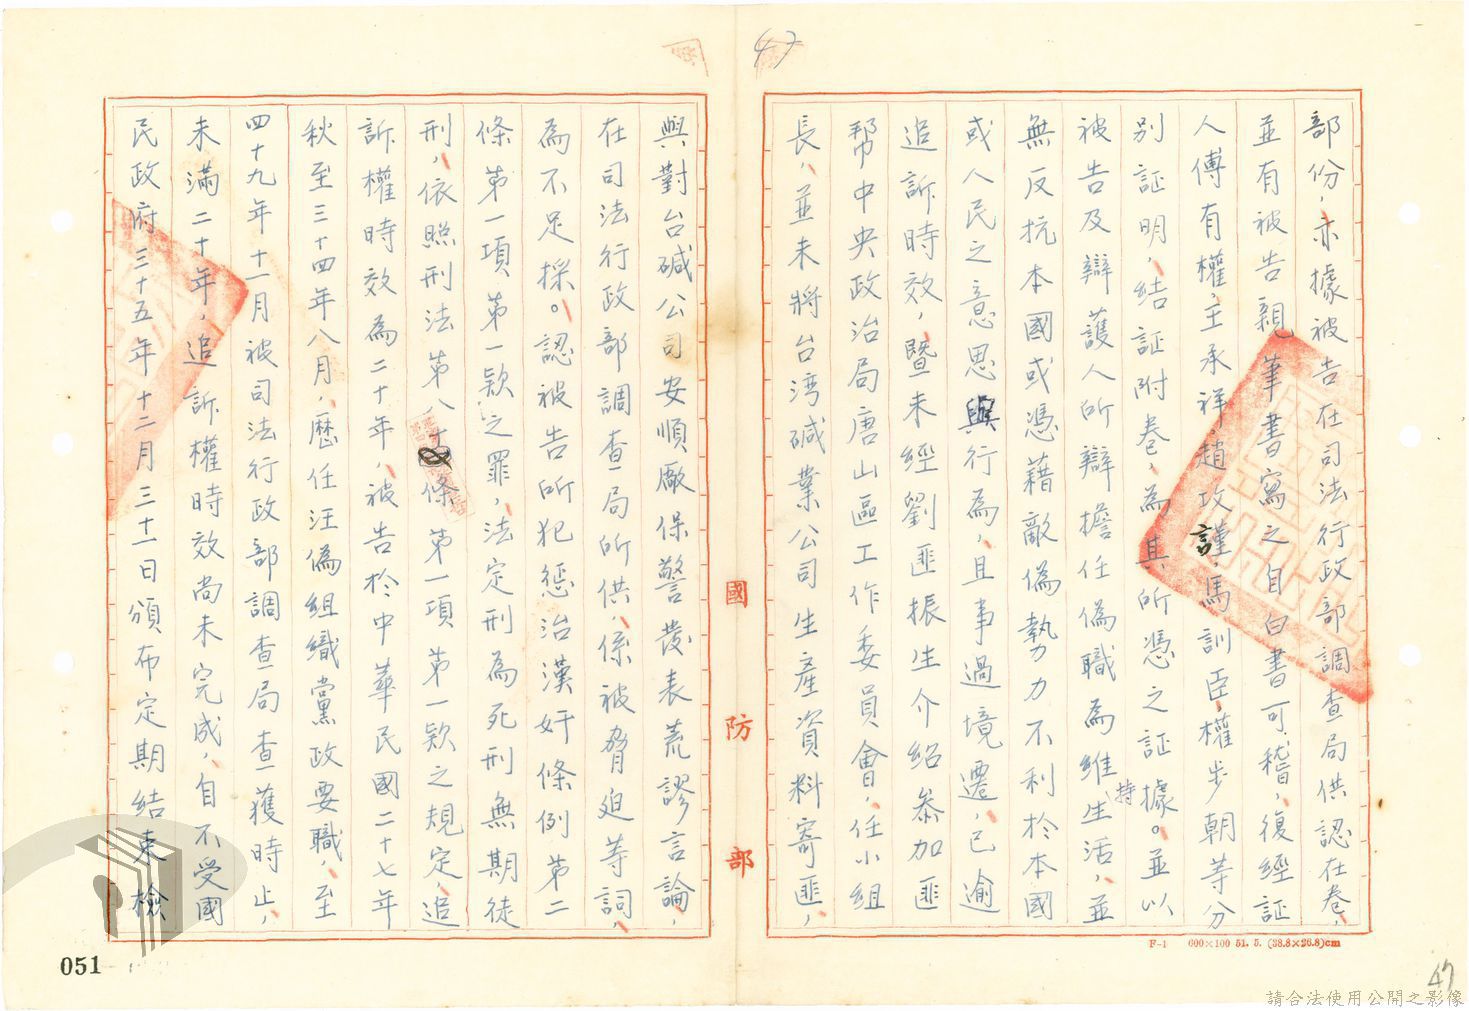 部份，亦據被告在司法行政部調查局供認在卷，
並有被告親筆書寫之自白書可稽，復經証
人傅有權，王承祥，趙攻謹，馬訓臣，權步朝等分
別証明，結証附卷，為其所憑之証據。並以
被告及辯護人所辯擔任偽職為維持生活，並
無反抗本國或憑藉敵偽勢力不利於本國
或人民之意思與行為，且事過境遷，已逾
追訴時效，暨未經劉匪振生介紹參加匪
幫中央政治局唐山區工作委員會，任小組
長，並未將台湾碱業公司生產資料寄匪，
與對台碱公司安順廠保警發表荒謬言論，
在司法行政部調查局所供，係被脅迫等詞，
為不足採。認被告所犯惩治漢奸條例第二
條第一項第一款之罪，法定刑為死刑無期徒
刑，依照刑法第八十條第一項第一款之規定，追
訴權時效為二十年，被告於中華民國二十七年
秋至三十四年八月，歷任汪偽組織黨政要職，至
四十九年十一月被司法行政部調查局查獲時止，
未滿二十年，追訴權時效尚未完成，自不受國
民政府三十五年十二月三十一日頒布定期結束檢
國防部
F-1 600×100 51. 5. (38.8×26.8)cm
47
47
051
請合法使用公開之影像